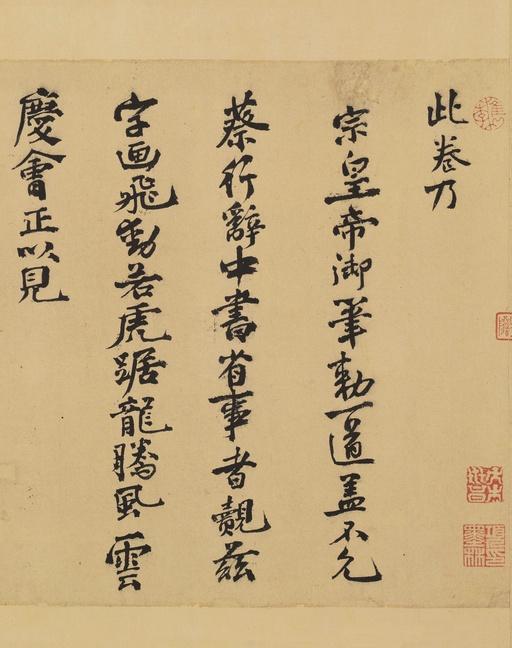 此卷乃
宗皇帝御筆勅一道盖不允
蔡行辭中書省事者觀茲
字画飛動若虎踞龍騰風雲
慶會正以見